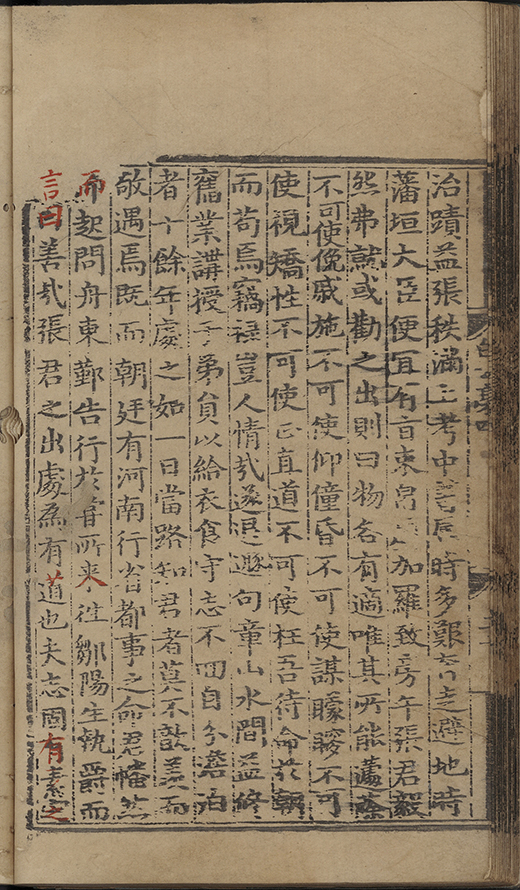 治蹟益張秩滿上考中書同時多艱吉走避地時
藩垣大臣便宜有旨束帛加羅致旁午張君毅
然弗就或勸之出則曰物各有適唯其所能蘧蒢
不可使俛戚施不可使仰僮昏不可使謀矇瞍不可
使視矯性不可使正直道不可使枉吾待命於朝
而苟焉竊祿豈人情哉遂退遯句章山水間益修
舊業講授子弟貧以給衣食守志不回自分澹泊
者十餘年處之如一日當路知君者莫不歆羨而
敬遇焉既而朝廷有河南行省都事之命君幡然
而起問舟東鄞告行於嘗所來往鄒陽生執爵而
言曰善哉張君之出處爲有道也夫志固有素定